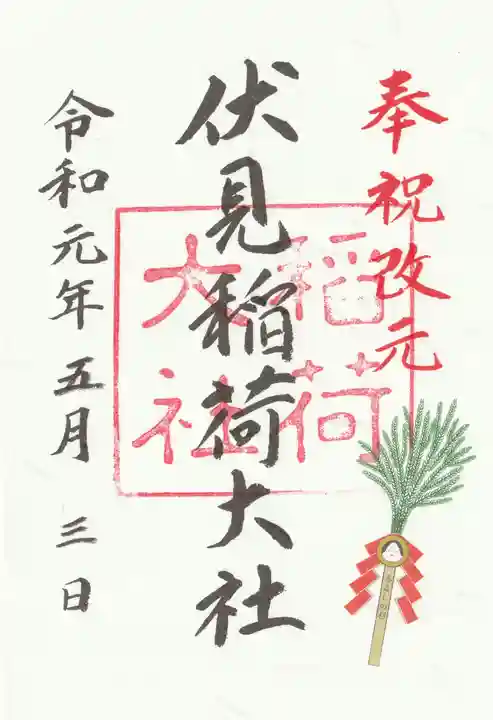 奉祝改元
伏見稲荷大社
稲荷
大社
令和元年五月三日